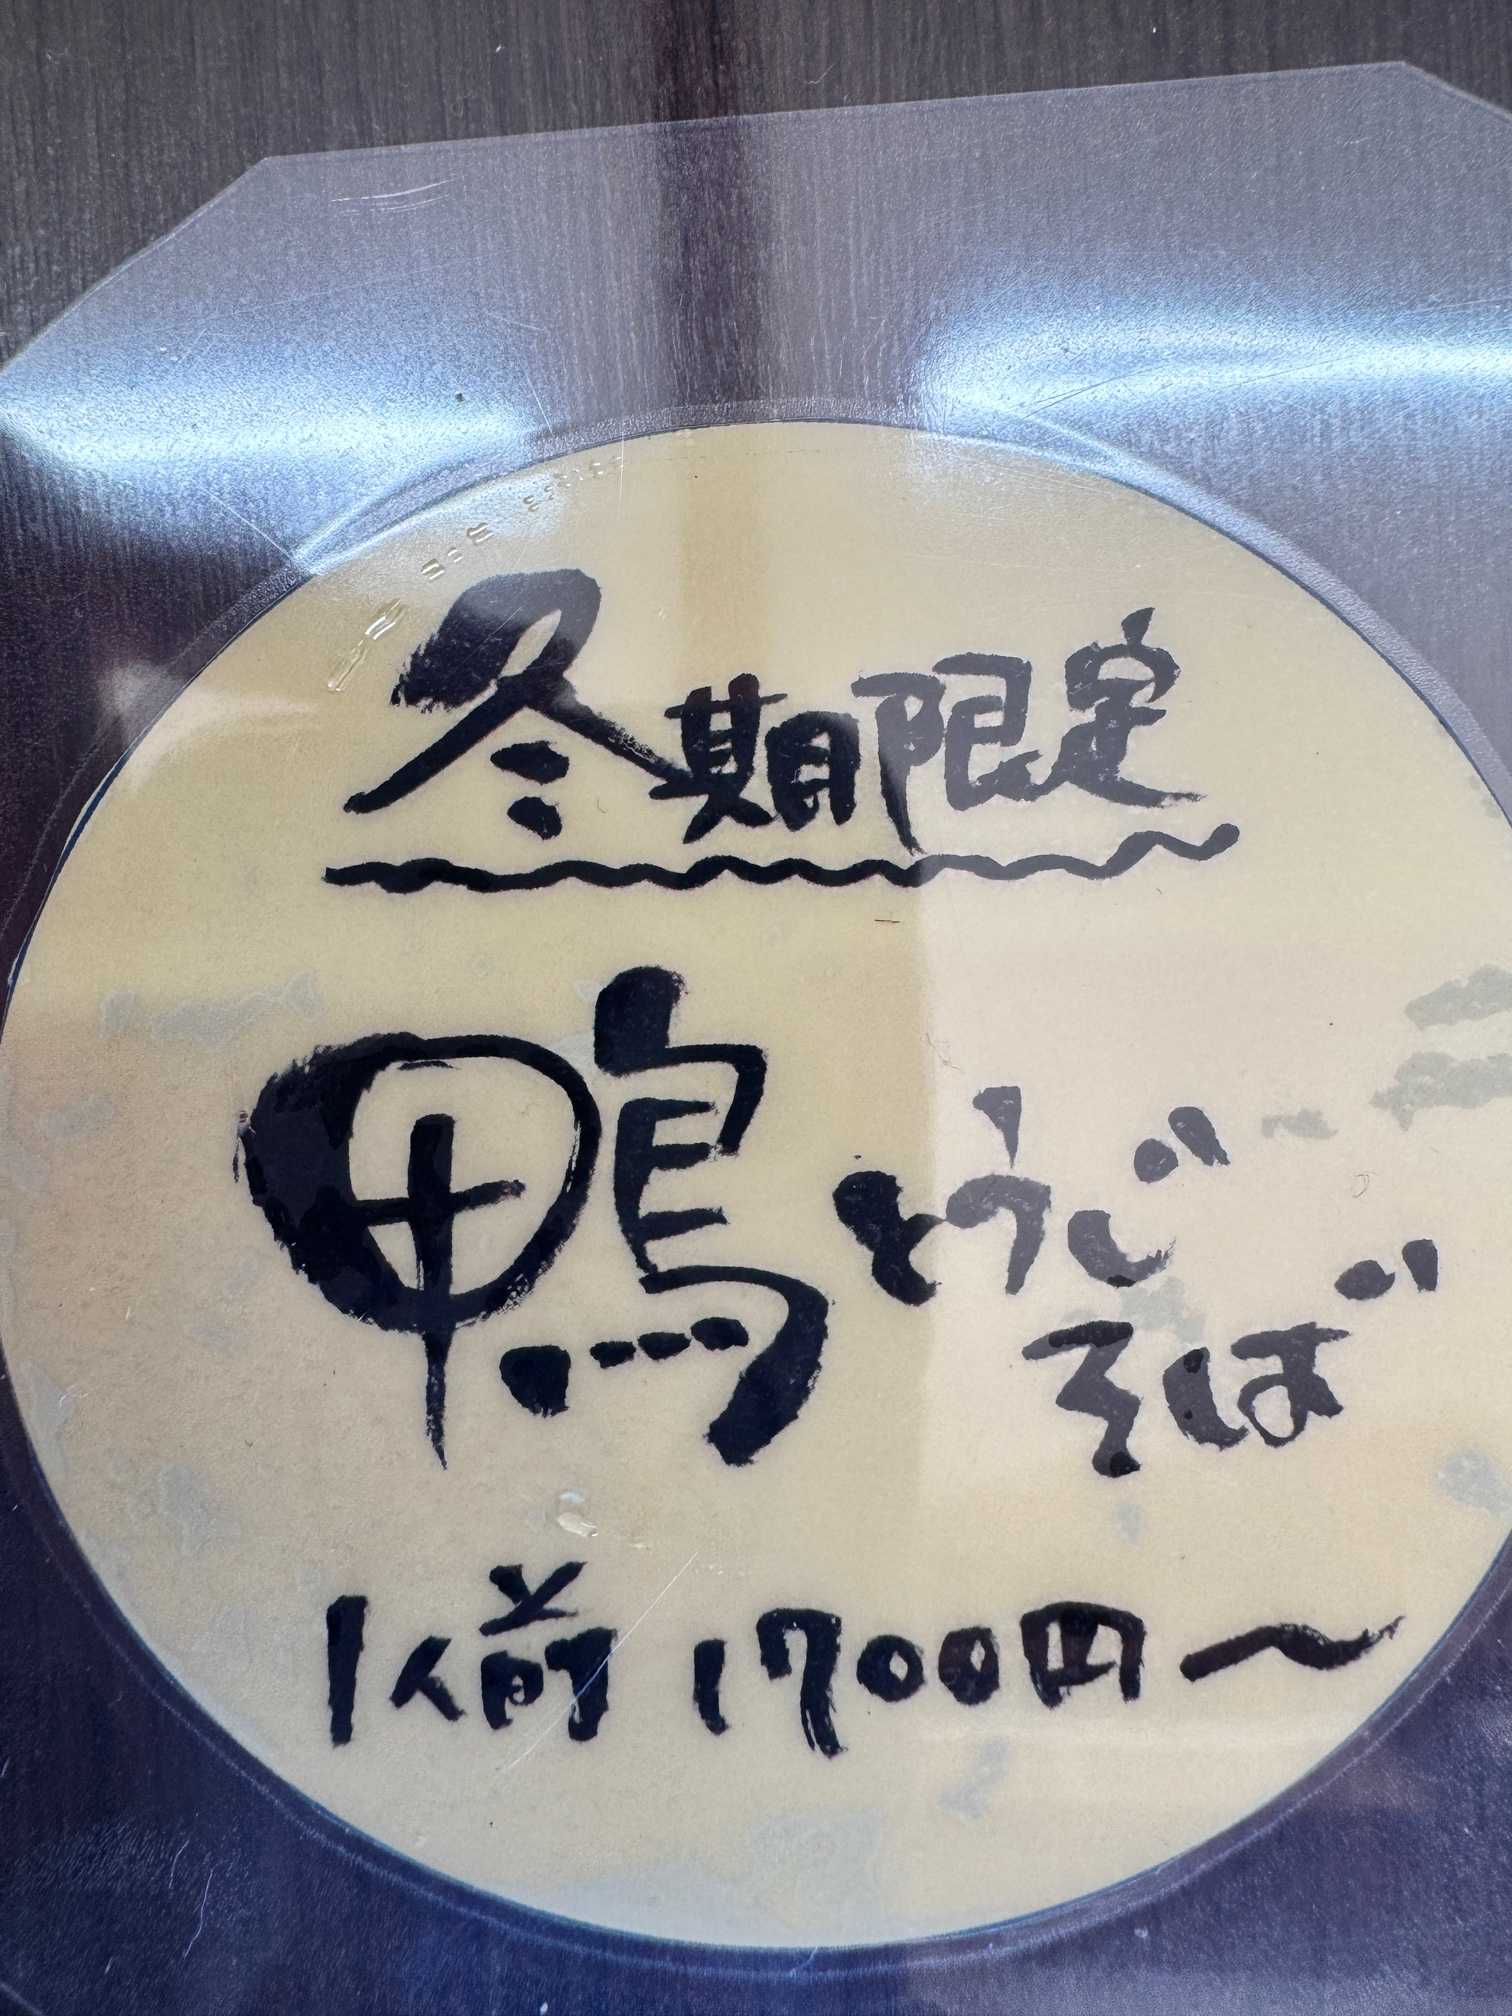 冬期限定
鴨とうじ
そば
1人前 1700円〜